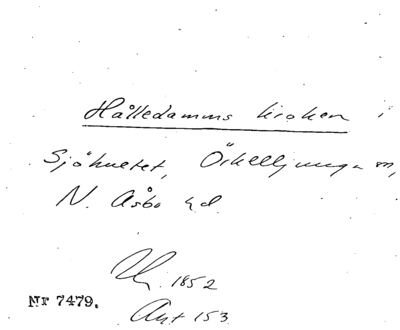 Hålledamms kroken i
Sjöhuetet, Örkelljunga sn,
N. Åsbo hd.
1852
Nr 7479.
Avt 153